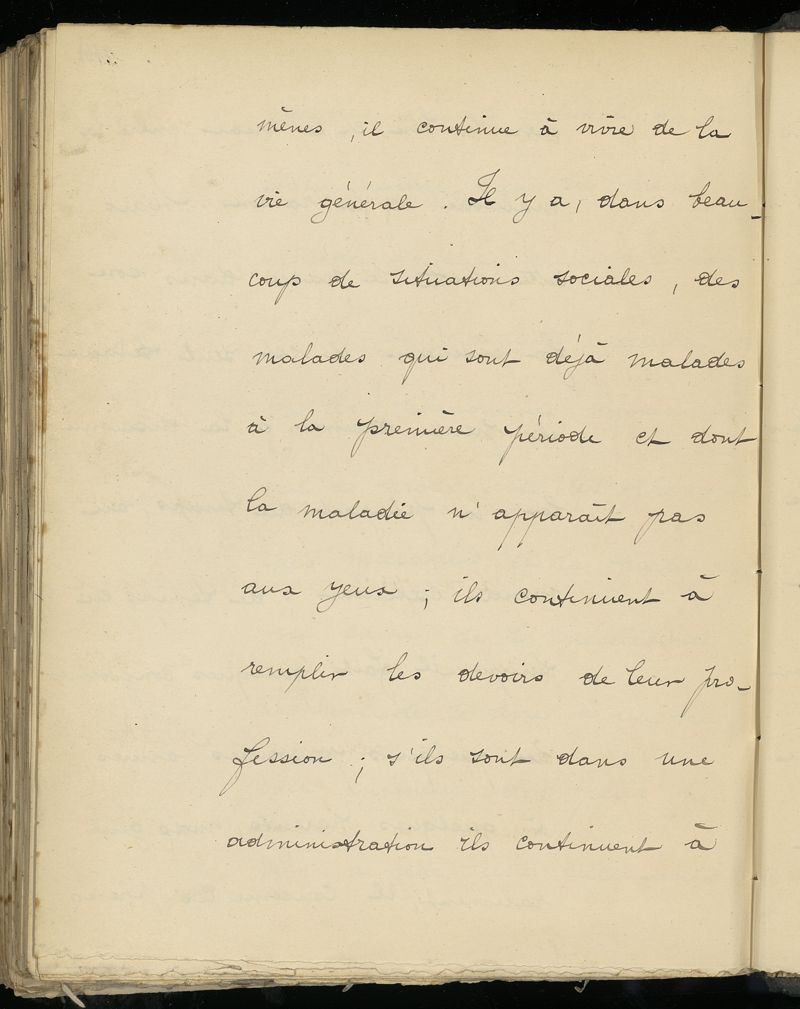 mênes, il continue à vivre de la
vie générale. Il y a, dans beau-
coup de situations sociales, des
malades qui sont déjà malades
à la première période et dont
la maladie n'apparaît pas
aux yeux ; ils continuent à
remplir les devoirs de leur pro-
fession ; s'ils sont dans une
administration ils continuent à